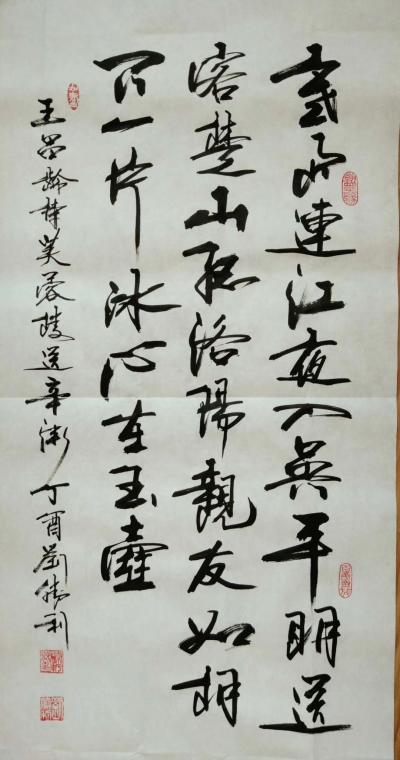 寒雨連江夜入吳平明送
客楚山孤洛陽親友如相
问一片冰心在玉壺
王昌齡詩芙蓉樓送辛漸 丁酉劉勝利